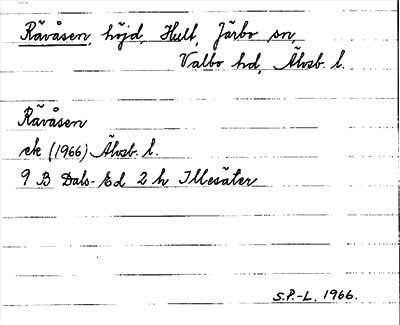 Rävåsen, höjd, Hult, Järbo sn,
Valbo hd, Älvsb. l.
Rävåsen
ek (1966) Älvsb. l.
9 B Dals-Ed 2 h Illesäter
S.P.-L. 1966.